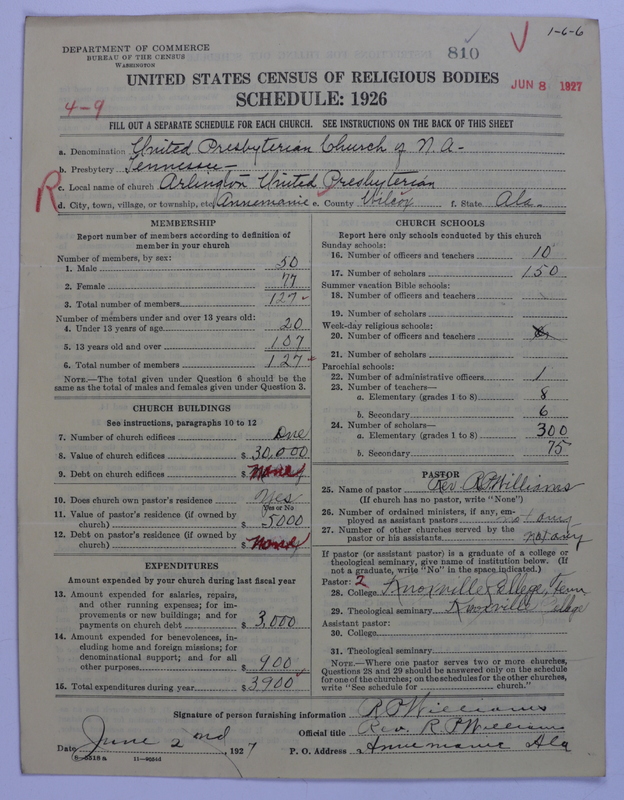 1-6-6
DEPARTMENT OF COMMERCE
BUREAU OF THE CENSUS
WASHINGTON
810
JUN 8 1927
UNITED STATES CENSUS OF RELIGIOUS BODIES
4-9
SCHEDULE: 1926
FILL OUT A SEPARATE SCHEDULE FOR EACH CHURCH. SEE INSTRUCTIONS ON THE BACK OF THIS SHEET
a. Denomination United Presbyterian Church of N.A-
b. Presbytery Tennessee-
R
c. Local name of church Arlington United Presbyterian
d. City, town, village, or township, etc. Annemanie e. County Wilcox f. State Ala-
MEMBERSHIP
Report number of members according to definition of
member in your church
Number of members, by sex:
1. Male 50
2. Female 77
3. Total number of members 127
Number of members under and over 13 years old:
4. Under 13 years of age 20
5. 13 years old and over 107
6. Total number of members 127
NOTE.—The total given under Question 6 should be the
same as the total of males and females given under Question 3.
CHURCH BUILDINGS
See instructions, paragraphs 10 to 12
7. Number of church edifices One
8. Value of church edifices $ 30,000
9. Debt on church edifices $ None
10. Does church own pastor's residence Yes
Yes or No
11. Value of pastor's residence (if owned by
church) $ 5000
12. Debt on pastor's residence (if owned by
church) $ None
EXPENDITURES
Amount expended by your church during last fiscal year
13. Amount expended for salaries, repairs,
and other running expenses; for im-
provements or new buildings; and for
payments on church debt $ 3,000
14. Amount expended for benevolences, in-
cluding home and foreign missions; for
denominational support; and for all
other purposes $ 900
15. Total expenditures during year $ 3900
CHURCH SCHOOLS
Report here only schools conducted by this church
Sunday schools:
16. Number of officers and teachers 10
17. Number of scholars 150
Summer vacation Bible schools:
18. Number of officers and teachers
19. Number of scholars
Week-day religious schools:
20. Number of officers and teachers
21. Number of scholars
Parochial schools:
22. Number of administrative officers 1
23. Number of teachers—
a. Elementary (grades 1 to 8) 8
b. Secondary 6
24. Number of scholars—
a. Elementary (grades 1 to 8) 300
b. Secondary 75
PASTOR
25. Name of pastor Rev. R.P. Williams
(If church has no pastor, write "None")
26. Number of ordained ministers, if any, em-
ployed as assistant pastors not any
27. Number of other churches served by the
pastor or his assistants not any
If pastor (or assistant pastor) is a graduate of a college or
theological seminary, give name of institution below. (If
not a graduate, write "No" in the space indicated.)
Pastor: 2
28. College Knoxville College, Tenn
29. Theological seminary Knoxville College
Assistant pastor:
30. College
31. Theological seminary
NOTE.—Where one pastor serves two or more churches,
Questions 28 and 29 should be answered only on the schedule
for one of the churches; on the schedules for the other churches,
write "See schedule for church."
Signature of person furnishing information R P Williams
Official title Rev. R. P. Williams
Date June 2nd, 1927 P. O. Address Annemanie Ala
8-5518a 11-9034d